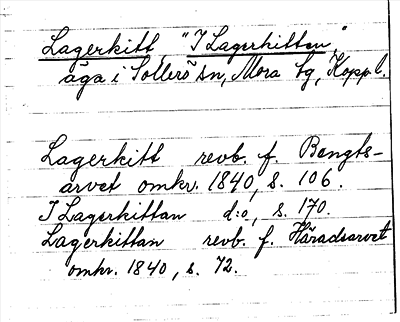 Lagerkitt, "I Lagerkitten"
äga i Sollerö sn, Mora tg, Kopp l.
Lagerkitt revb. f. Bengts-
arvet omkr. 1840, s. 106.
I Lagerkittan d:o, s. 170.
Lagerkittan revb. f. Häradsarvet
omkr. 1840, s. 72.